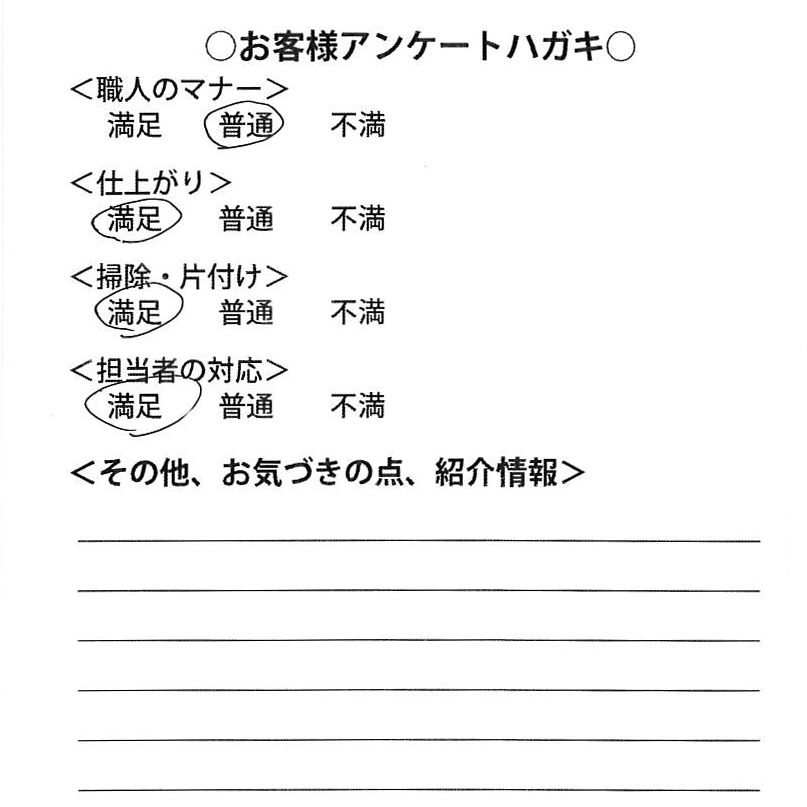 ○お客様アンケートハガキ○
＜職人のマナー＞
満足 普通 不満
＜仕上がり＞
満足 普通 不満
＜掃除・片付け＞
満足 普通 不満
＜担当者の対応＞
満足 普通 不満
＜その他、お気づきの点、紹介情報＞